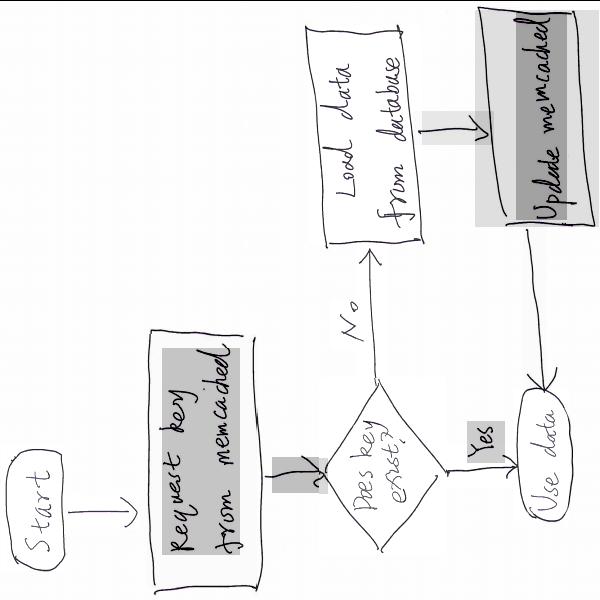 Start
Request key
from memcached
Does key
exist?
No
Load data
from database
Update memcached
Yes
Use data